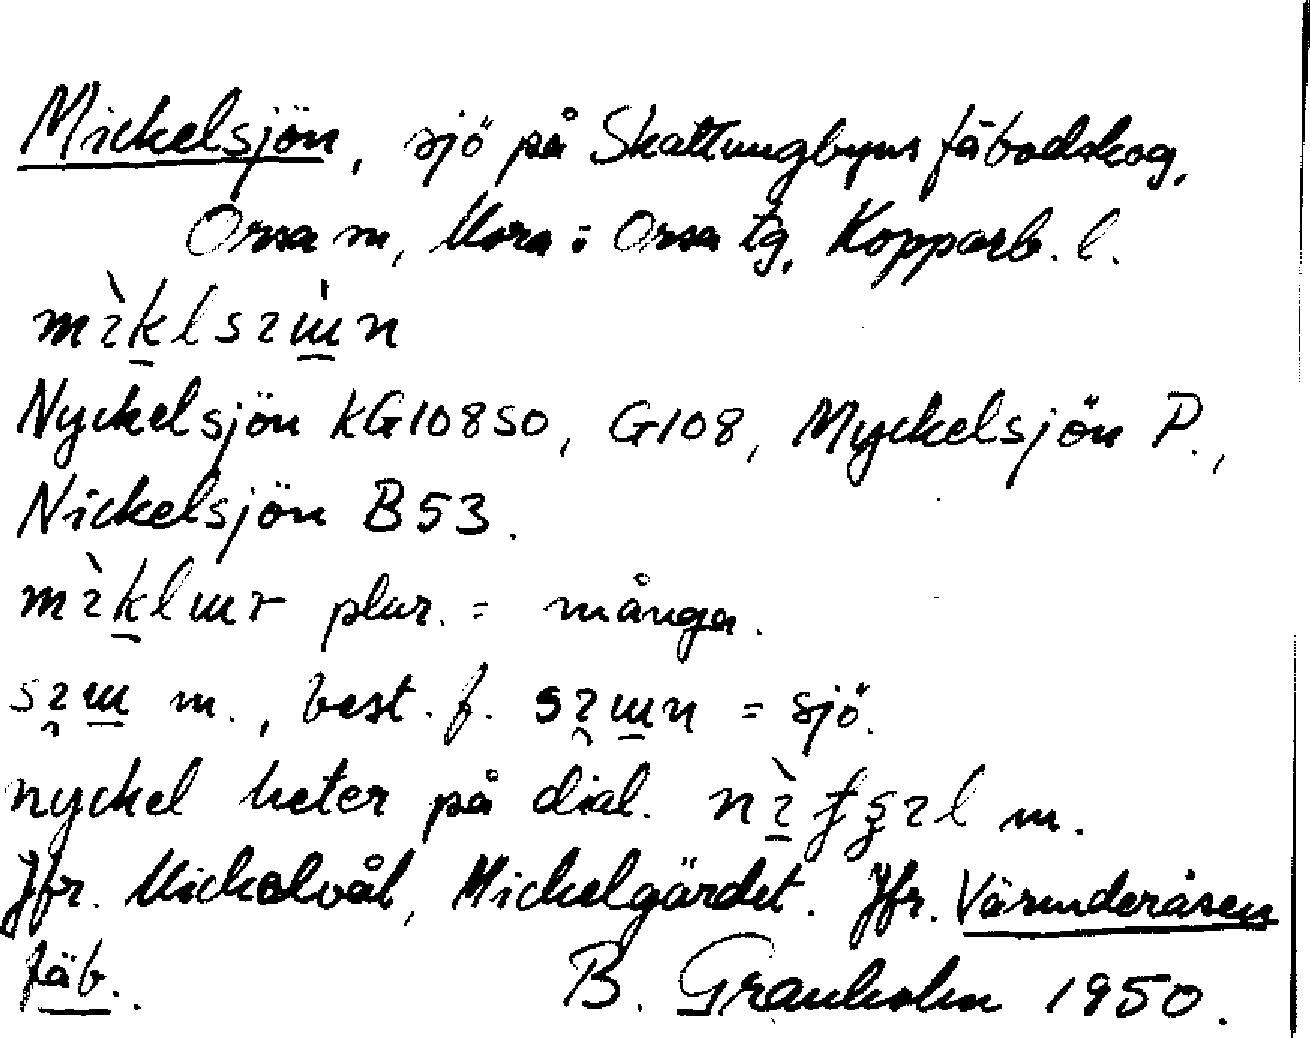 Mickelsjön, sjö på Skattungbyns fäbodskog,
Orsa m, Mora o Orsa tg, Kopparb. l.
Nyckelsjön KG10850, G108, Myckelsjön P.,
Nickelsjön B53.
plur. = många.
m., best. f. = sjö.
nyckel heter på dial. m.
Jfr. Mickelvål, Mickelgärdet. Jfr. Våsinderåsen
fäb. B. Granholm 1950.